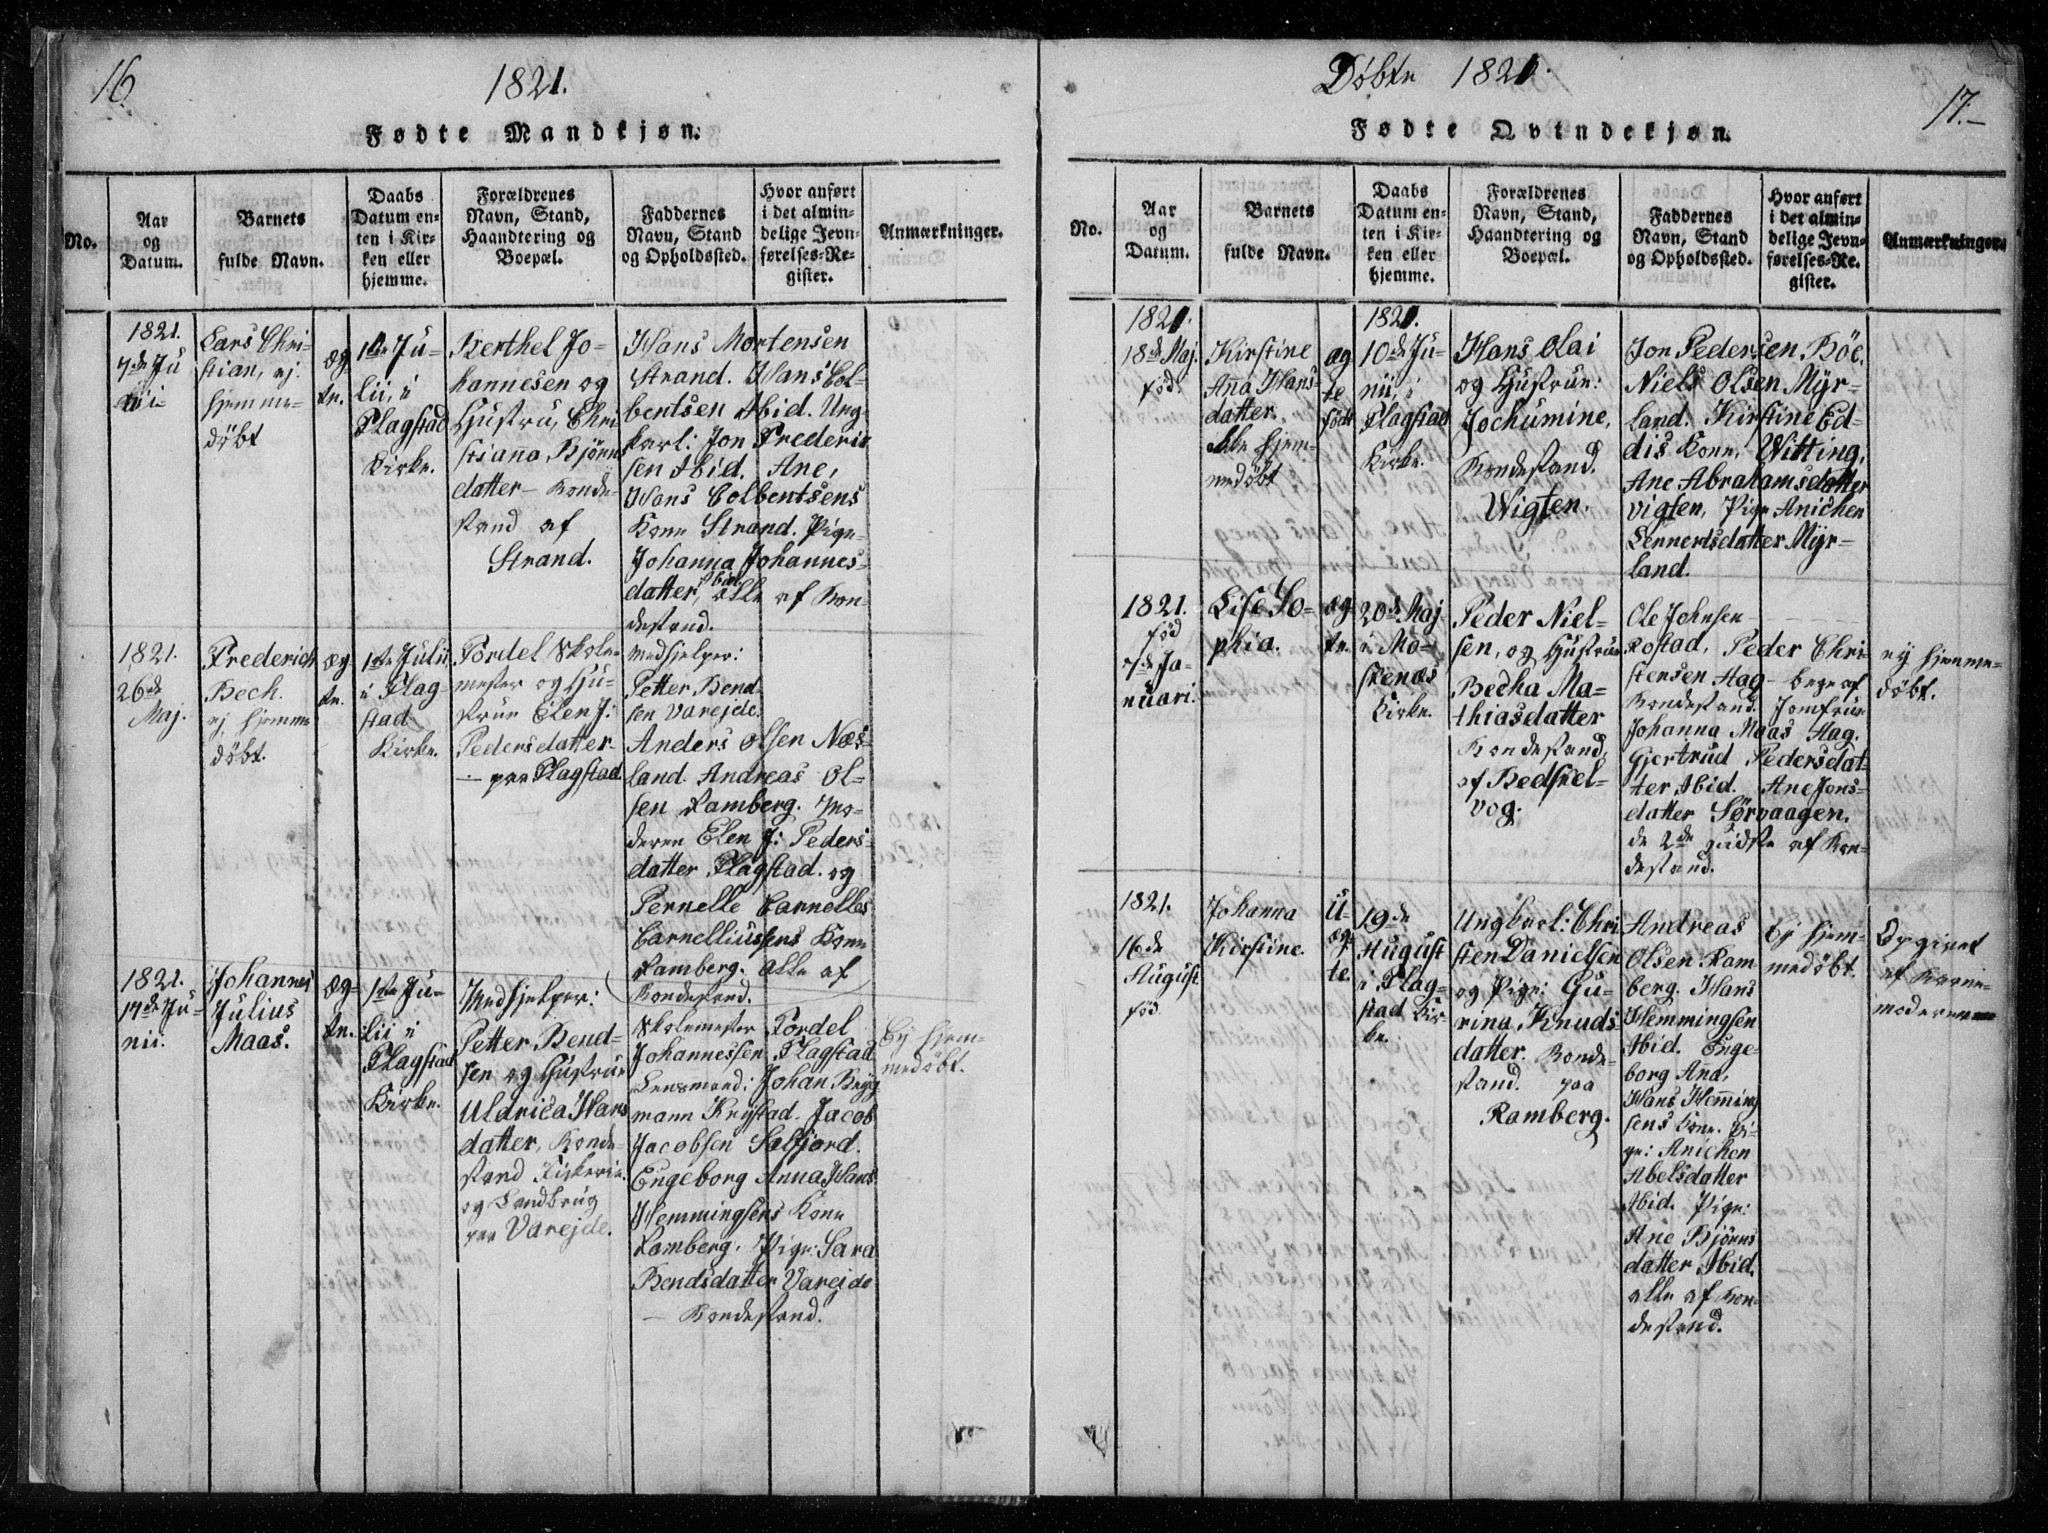 16.
1821.
Fødte Mandkjøn.
No.
Aar
og
Datum.
Barnets
fulde Navn.
Daabs
Datum en-
ten i Kir-
ken eller
hjemme.
Forældrenes
Navn, Stand,
Haandtering og
Boepæl.
Faddernes
Navn, Stand
og Opholdssted.
Hvor anført
i det almin-
delige Jevn-
førelses-Re-
gister.
Anmærkninger.
1821.
7de Ju
nii
Lars Chri-
stian, ej
hjemme-
døbt
æg
te.
1ste Ju-
lii, i
Flagstad
Kirke.
Berthel Jo-
hannesen og
Hustru, Chri
stianna Bjørns
datter- Bonde-
stand af
Strand.
Hans Mortensen
Strand. Hans Col-
bentsen Ibid. Ung-
karl: Jon Frederic
sen Ibid. Ane,
Hans Colbentsens
Kone Strand. Pige-
Johanna Johannes-
datter, ibid alle af Bon-
destand.
1821.
26de
Maj.
Frederich
Bech.
ej hjemme
døbt.
æg
te.
1ste Julii
i Flag-
stad
Kirke.
Tordel Skole-
mester og Hu-
strue Elen J:
Pedersdatter-
- paa Flagstad.
Medhjelper:
Petter Bend-
sen Varejde.
Anders Olsen Næs-
land. Andreas Ol-
sen Ramberg. Mo-
deren Elen J: Peders-
datter Flagstad. og
Pernelle Carnelles
Carnelliussens Kone
Ramberg. alle af
Bondestand.
1821.
14de Ju-
nii.
Johannes
Julius
Maas.
æg-
te.
1ste Ju-
lii i
Flagstad
Kirke.
Medhjelper:
Petter Bend-
sen og Hustrue
Uldrica Hans
datter, Bonde-
stand Fiskerie
og Landbrug
paa Varejde.
Skolemester Tordel
Johannessen Flagstad
Lensmand: Johan Brÿg
mann Krystad. Jacob
Jacobsen Selfjord.
Engeborg Anna Hans
Hemmingsens Kone
Ramberg. Pige: Sara
Bendsdatter Varejde
- Bondestand.
Ej hjem-
medøbt.
Døbte 1821.
17.-
Fødte Qvindekjøn.
No.
Aar
og
Datum.
Barnets
fulde Navn.
Daabs
Datum en-
ten i Kir-
ken eller
hjemme.
Forældrenes
Navn, Stand,
Haandtering og
Boepæl.
Faddernes
Navn, Stand
og Opholdssted.
Hvor anført
i det almin-
delige Jevn-
førelses-Re-
gister.
Anmærkninger.
1821.
18de Maj.
fød.
Kirstine
Anna Hans-
datter.
hjem-
medøbt
æg
te
født
1821.
10de Ju-
nii, i
Flagstad
Kirke.
Hans Olai
og Hustrue:
Jochumine,
Bondestand.
Wigten.
Jon Pedersen Böe.
Niels Olsen Myr-
land. Kirstine Ed-
dis Kone, Witting,
Ane Abrahamsdatter
vigten, Pige Anichen
Lennertsdatter Myr-
land.
1821.
fød
7de Ja-
nuari.
Lise So-
phia.
æg
te.
20de Maj
i Mo-
skenæs
Kirke.
Peder Niel-
sen, og Hustrue
Becha Ma-
thiasdatter
Bondestand,
af Bedsuel-
vog.
Ole Johnsen
Rostad, Peder Chri-
stensen Aag- bege af
Bondestand. Jomfrue
Johanna Maas Aag.
Gjertrud Pedersdat-
ter Ibid. Ane Jons-
datter Sörvaagen.
de 2de sidste af Bon-
destand.
ej hjemme-
døbt.
1821.
16de
August
fød
Johanna
Kirstine.
U-
æg-
te.
19de
August
i Flag-
stad Kir-
ke.
Ungkarl: Chri
sten Danielsen
og Pige: Gu-
rina Knuds-
datter. Bonde-
stand. paa
Ramberg.
Andreas
Olsen Ram
berg. Hans
Hemmingsen
Ibid. Enge-
borg Ana,
Hans Heming
sens Kone. Pi-
ge: Anichen
Abelsdatter
Ibid. Pige:
Ane Bjørns
datter Ibid.
alle af Bon-
destand.
Ej hjem-
medøbt.
Opgivet
af Barne-
moderen